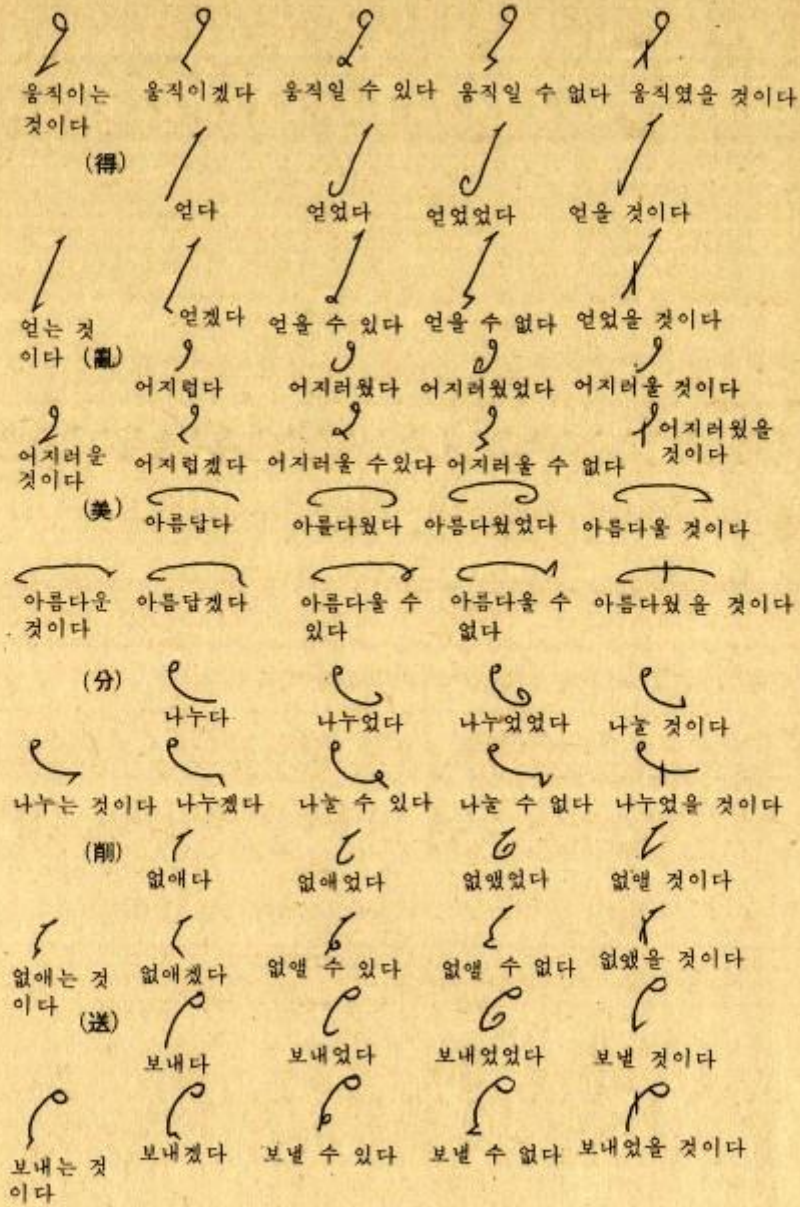 움직이는 움직이겠다 움직일 수 있다 움직일 수 없다 움직였을 것이다
것이다
(得)
얻다 얻었다 얻었었다 얻을 것이다
얻는 것 얻겠다 얻을 수 있다 얻을 수 없다 얻었을 것이다
이다 (亂)
어지럽다 어지러웠다 어지러웠었다 어지러울 것이다
어지러운 어지럽겠다 어지러울 수있다 어지러울 수 없다 어지러웠을
것이다 것이다
(美)
아름답다 아름다웠다 아름다웠었다 아름다울 것이다
아름다운 아름답겠다 아름다울 수 아름다울 수 아름다웠 을 것이다
것이다 있다 없다
(分)
나누다 나누었다 나누었었다 나눌 것이다
나누는 것이다 나누겠다 나눌 수 있다 나눌 수 없다 나누었을 것이다
(削)
없애다 없애었다 없앴었다 없앨 것이다
없애는 것 없애겠다 없앨 수 있다 없앨 수 없다 없앴을 것이다
이다
(送)
보내다 보내었다 보내었었다 보낼 것이다
보내는 것 보내겠다 보낼 수 있다 보낼 수 없다 보내었을 것이다
이다